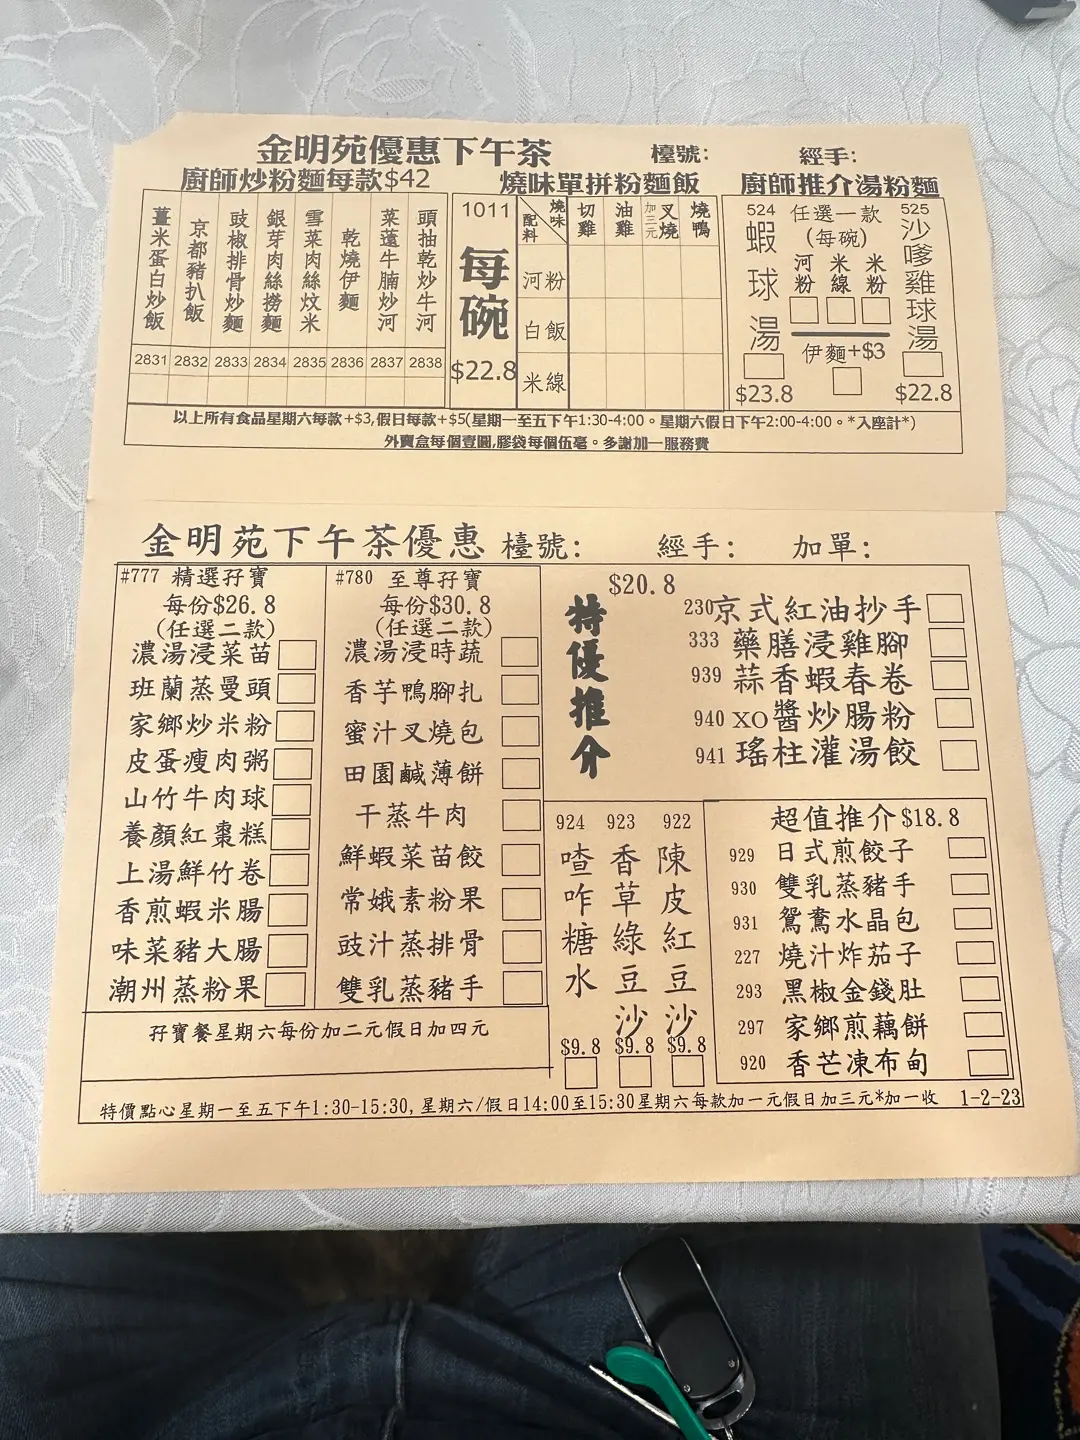 金明苑優惠下午茶 檯號: 經手:
廚師炒粉麵每款$42
薑米蛋白炒飯 2831
京都豬扒飯 2832
豉椒排骨炒麵 2833
銀芽肉絲撈麵 2834
雪菜肉絲炆米 2835
乾燒伊麵 2836
菜薳牛腩炒河 2837
頭抽乾炒牛河 2838
燒味單拼粉麵飯
1011
每碗
$22.8
配料 燒味 切雞 油雞 加三元 叉燒 燒鴨
河粉
白飯
米線
廚師推介湯粉麵
524
蝦球湯
$23.8
任選一款
(每碗)
河粉 米線 米粉
伊麵+$3
525
沙嗲雞球湯
$22.8
以上所有食品星期六每款+$3,假日每款+$5(星期一至五下午1:30-4:00。星期六假日下午2:00-4:00。*入座計*)
外賣盒每個壹圓,膠袋每個伍毫。多謝加一服務費
金明苑下午茶優惠 檯號: 經手: 加單:
#777 精選孖寶
每份$26.8
(任選二款)
濃湯浸菜苗
班蘭蒸曼頭
家鄉炒米粉
皮蛋瘦肉粥
山竹牛肉球
養顏紅棗糕
上湯鮮竹卷
香煎蝦米腸
味菜豬大腸
潮州蒸粉果
#780 至尊孖寶
每份$30.8
(任選二款)
濃湯浸時蔬
香芋鴨腳扎
蜜汁叉燒包
田園鹹薄餅
干蒸牛肉
鮮蝦菜苗餃
常娥素粉果
豉汁蒸排骨
雙乳蒸豬手
孖寶餐星期六每份加二元假日加四元
特優推介
$20.8
230 京式紅油抄手
333 藥膳浸雞腳
939 蒜香蝦春卷
940 XO醬炒腸粉
941 瑤柱灌湯餃
924 喳咋糖水 $9.8
923 香草綠豆沙 $9.8
922 陳皮紅豆沙 $9.8
超值推介$18.8
929 日式煎餃子
930 雙乳蒸豬手
931 鴛鴦水晶包
227 燒汁炸茄子
293 黑椒金錢肚
297 家鄉煎藕餅
920 香芒凍布甸
特價點心星期一至五下午1:30-15:30,星期六/假日14:00至15:30星期六每款加一元假日加三元*加一收 1-2-23